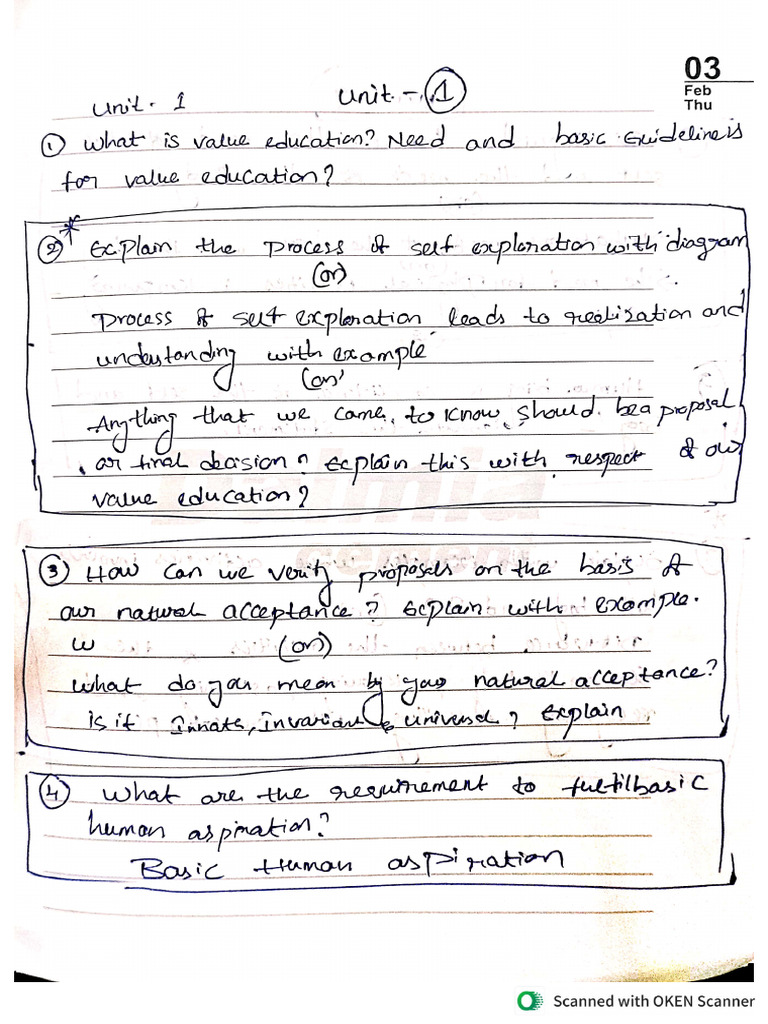 03
Feb
Thu
Unit - 1 Unit - 1
① What is value education? Need and basic Guidelines
for value education?
② Explain the process of self exploration with diagram
(or)
Process of self exploration leads to realization and
understanding with example
(or)
Anything that we came to know should be a proposal
or final decision? Explain this with respect of our
value education?
③ How can we verify proposals on the basis of
our natural acceptance? Explain with example.
w (or)
What do you mean by your natural acceptance?
is it Innate, Invariant & universal? Explain
④ What are the requirement to fulfil basic
human aspiration?
Basic Human aspiration
Scanned with OKEN Scanner